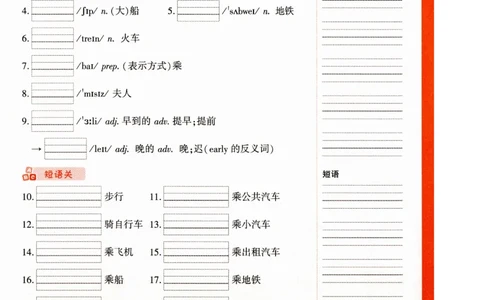 4. /ʃɪp/ n. (大)船 5. /ˈsʌbweɪ/ n. 地铁
6. /treɪn/ n. 火车
7. /baɪ/ prep. (表示方式)乘
8. /ˈmɪsɪz/ 夫人
9. /ˈɜːli/ adj. 早到的 adv. 提早;提前
→ /leɪt/ adj. 晚的 adv. 晚;迟(early 的反义词)
短语关 短语
10. 步行 11. 乘公共汽车
12. 骑自行车 13. 乘小汽车
14. 乘飞机 15. 乘出租汽车
16. 乘船 17. 乘地铁